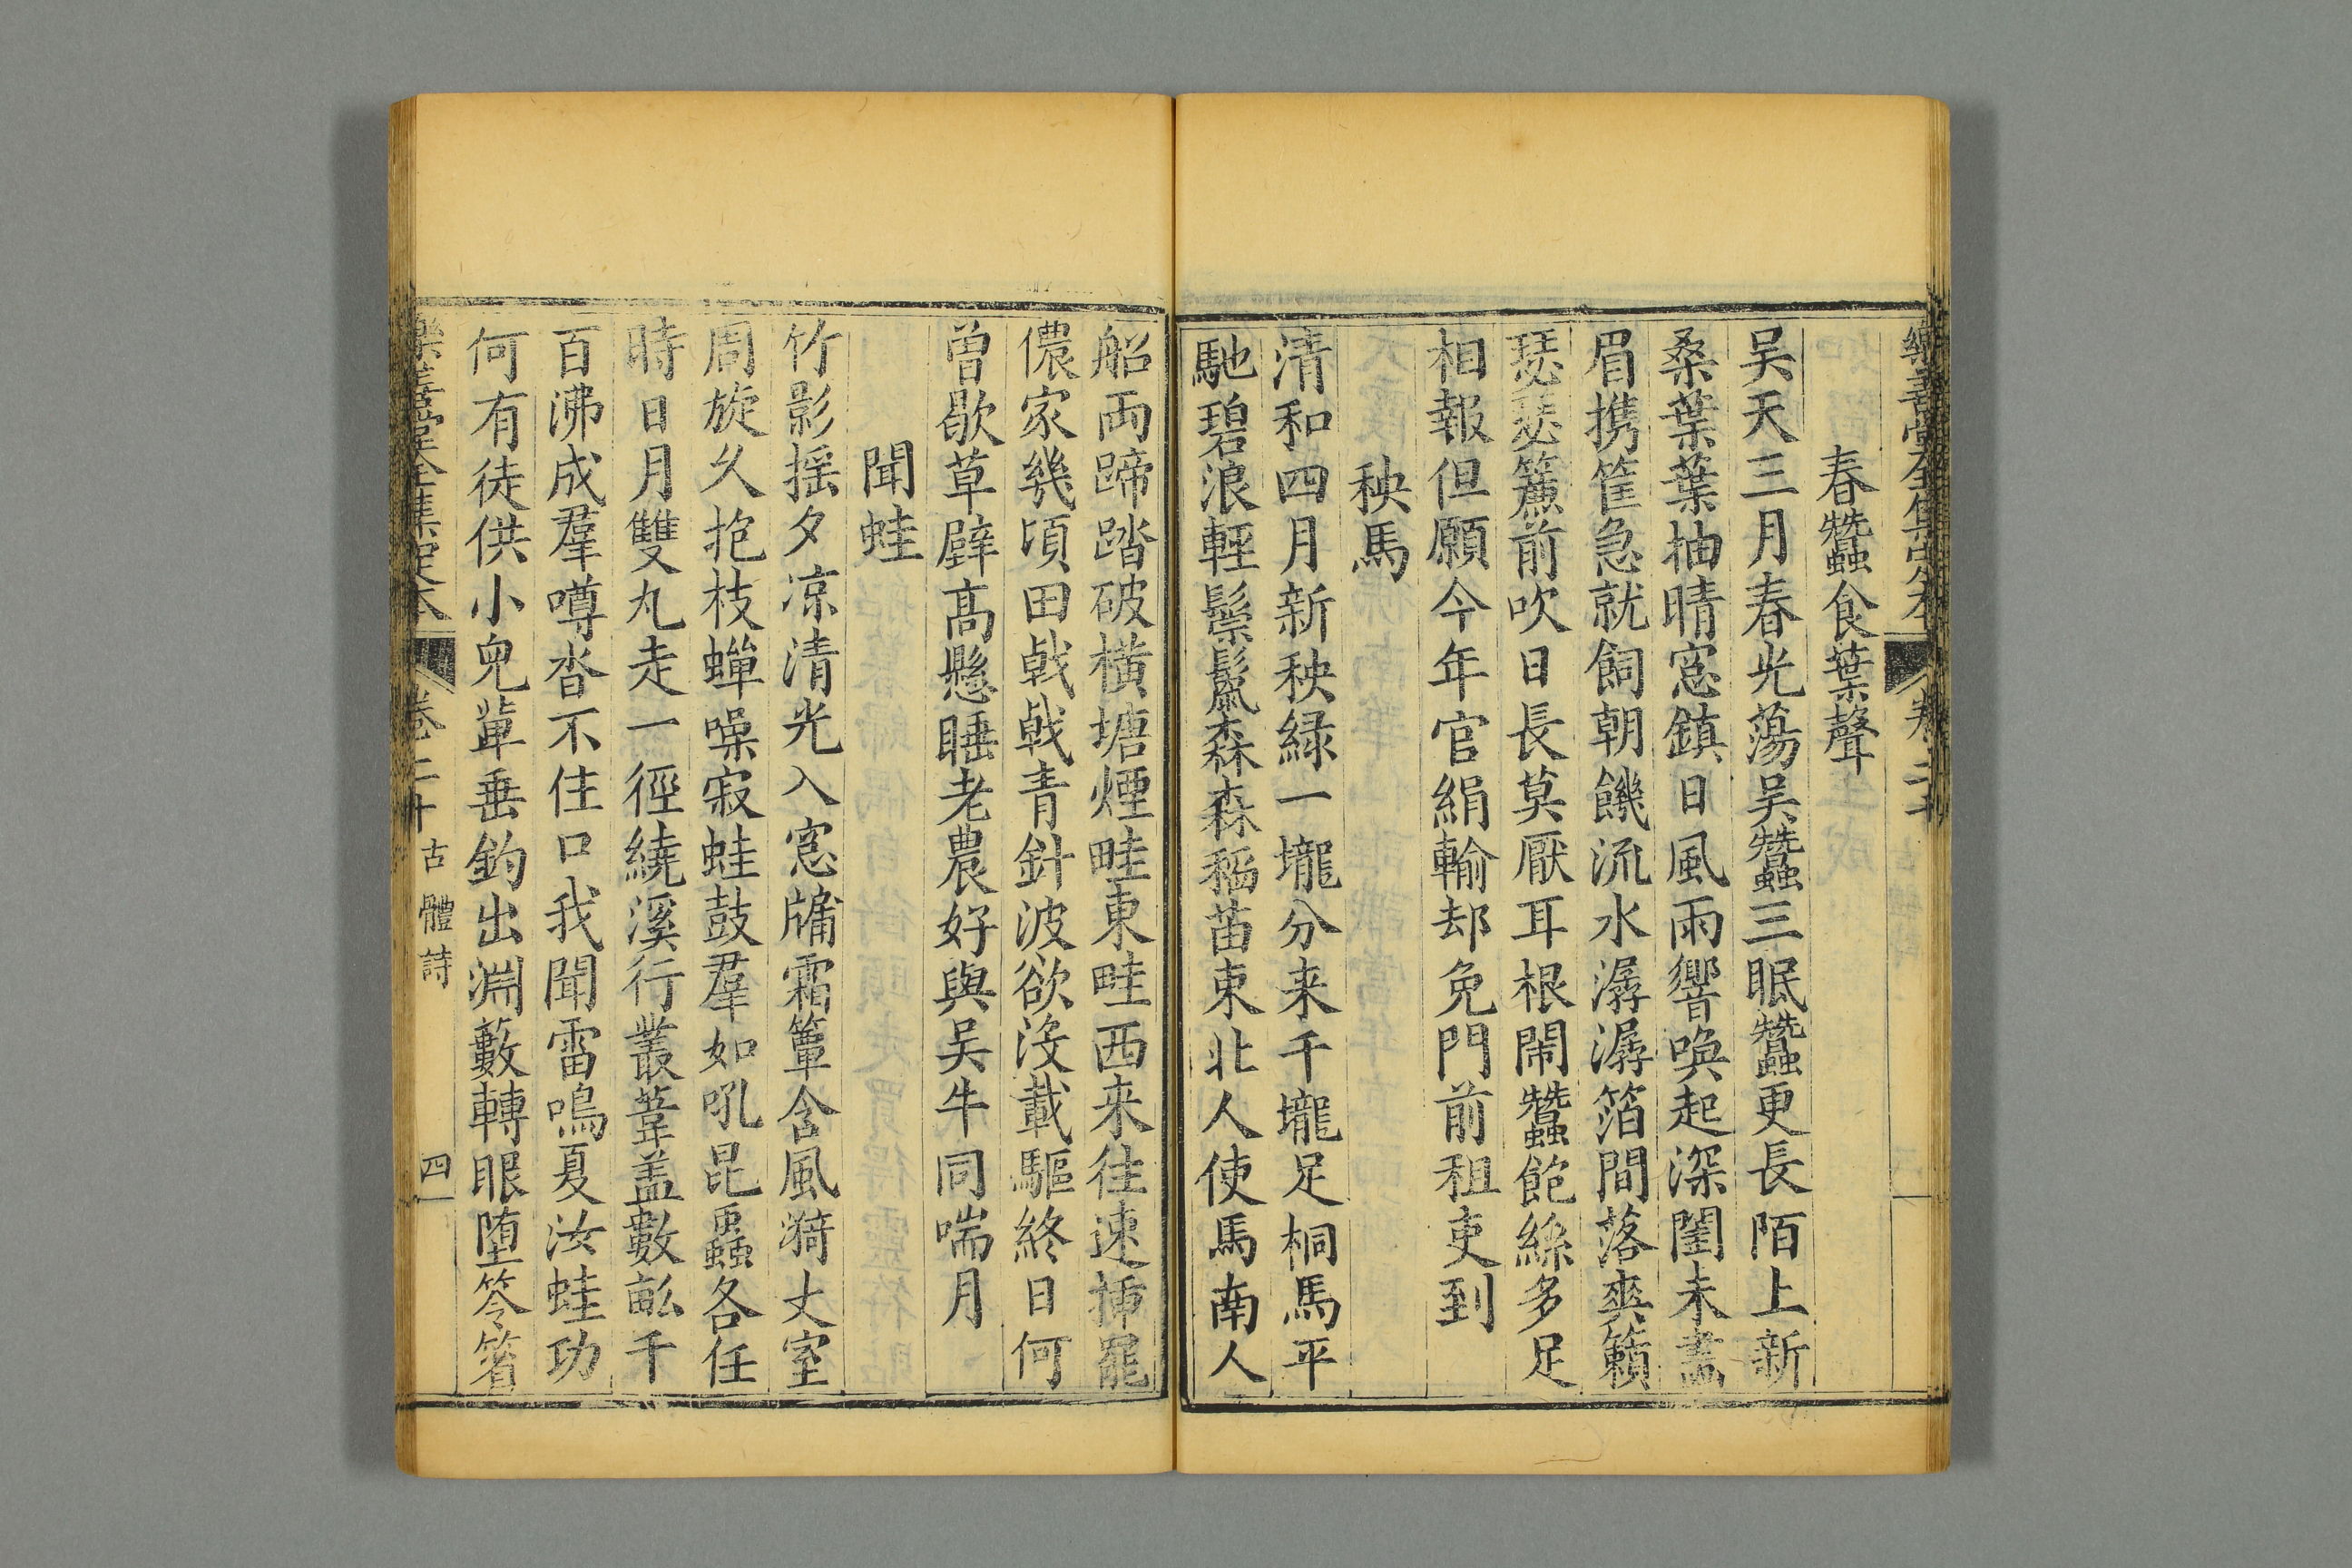 樂善堂全集定本 卷二十
春蠶食葉聲
吴天三月春光蕩吴蠶三眠蠶更長陌上新
桑葉葉抽晴窓鎮日風雨響喚起深閨未畫
眉携筐急就飼朝饑流水潺潺箔間落爽籟
瑟瑟簾前吹日長莫厭耳根鬧蠶飽絲多足
相報但願今年官絹輸却免門前租吏到
秧馬
清和四月新秧緑一壠分来千壠足桐馬平
馳碧浪輕鬃鬣森森稻苗束北人使馬南人
船両蹄踏破横塘煙畦東畦西来往速挿罷
儂家幾頃田戟戟青針波欲没載驅終日何
曽歇草壁髙懸睡老農好與吴牛同喘月
聞蛙
竹影摇夕凉清光入窓牗霜簟含風漪丈室
周旋久抱枝蟬噪寂蛙鼓羣如吼昆蟲各任
時日月雙丸走一徑繞溪行叢葦盖數畝千
百沸成羣噂沓不住口我聞雷鳴夏汝蛙功
何有徒供小兒輩垂釣出淵藪轉眼堕笭箵
樂善堂全集定本 卷二十 古體詩 四